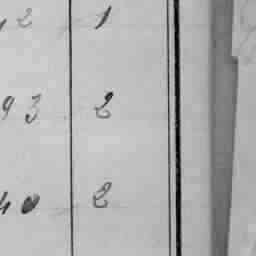 2 1
93 2
40 2